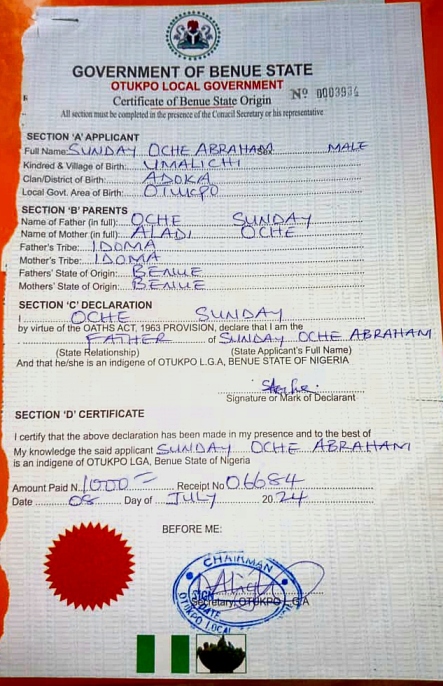 GOVERNMENT OF BENUE STATE
OTUKPO LOCAL GOVERNMENT
Certificate of Benue State Origin Nº 0003934
All section must be completed in the presence of the Council Secretary or his representative
SECTION 'A' APPLICANT
Full Name: SUNDAY OCHE ABRAHAM Sex MALE
Kindred & Village of Birth: UMALICHI
Clan/District of Birth: ADOKA
Local Govt. Area of Birth: OTUKPO
SECTION 'B' PARENTS
Name of Father (in full) OCHE SUNDAY
Name of Mother (in full) ALADI OCHE
Father's Tribe: IDOMA
Mother's Tribe: IDOMA
Fathers' State of Origin: BENUE
Mothers' State of Origin: BENUE
SECTION 'C' DECLARATION
I OCHE SUNDAY
by virtue of the OATHS ACT, 1963 PROVISION, declare that I am the
FATHER of SUNDAY OCHE ABRAHAM
(State Relationship) (State Applicant's Full Name)
And that he/she is an indigene of OTUKPO L.G.A, BENUE STATE OF NIGERIA
Signature or Mark of Declarant
SECTION 'D' CERTIFICATE
I certify that the above declaration has been made in my presence and to the best of
My knowledge the said applicant SUNDAY OCHE ABRAHAM
is an indigene of OTUKPO LGA, Benue State of Nigeria
Amount Paid N. 1000= Receipt No 06684
Date 08 Day of JULY 2024
BEFORE ME:
CHAIRMAN
SIGN
DATE
Secretary, OTUKPO L.G.A
OTUKPO LOCAL